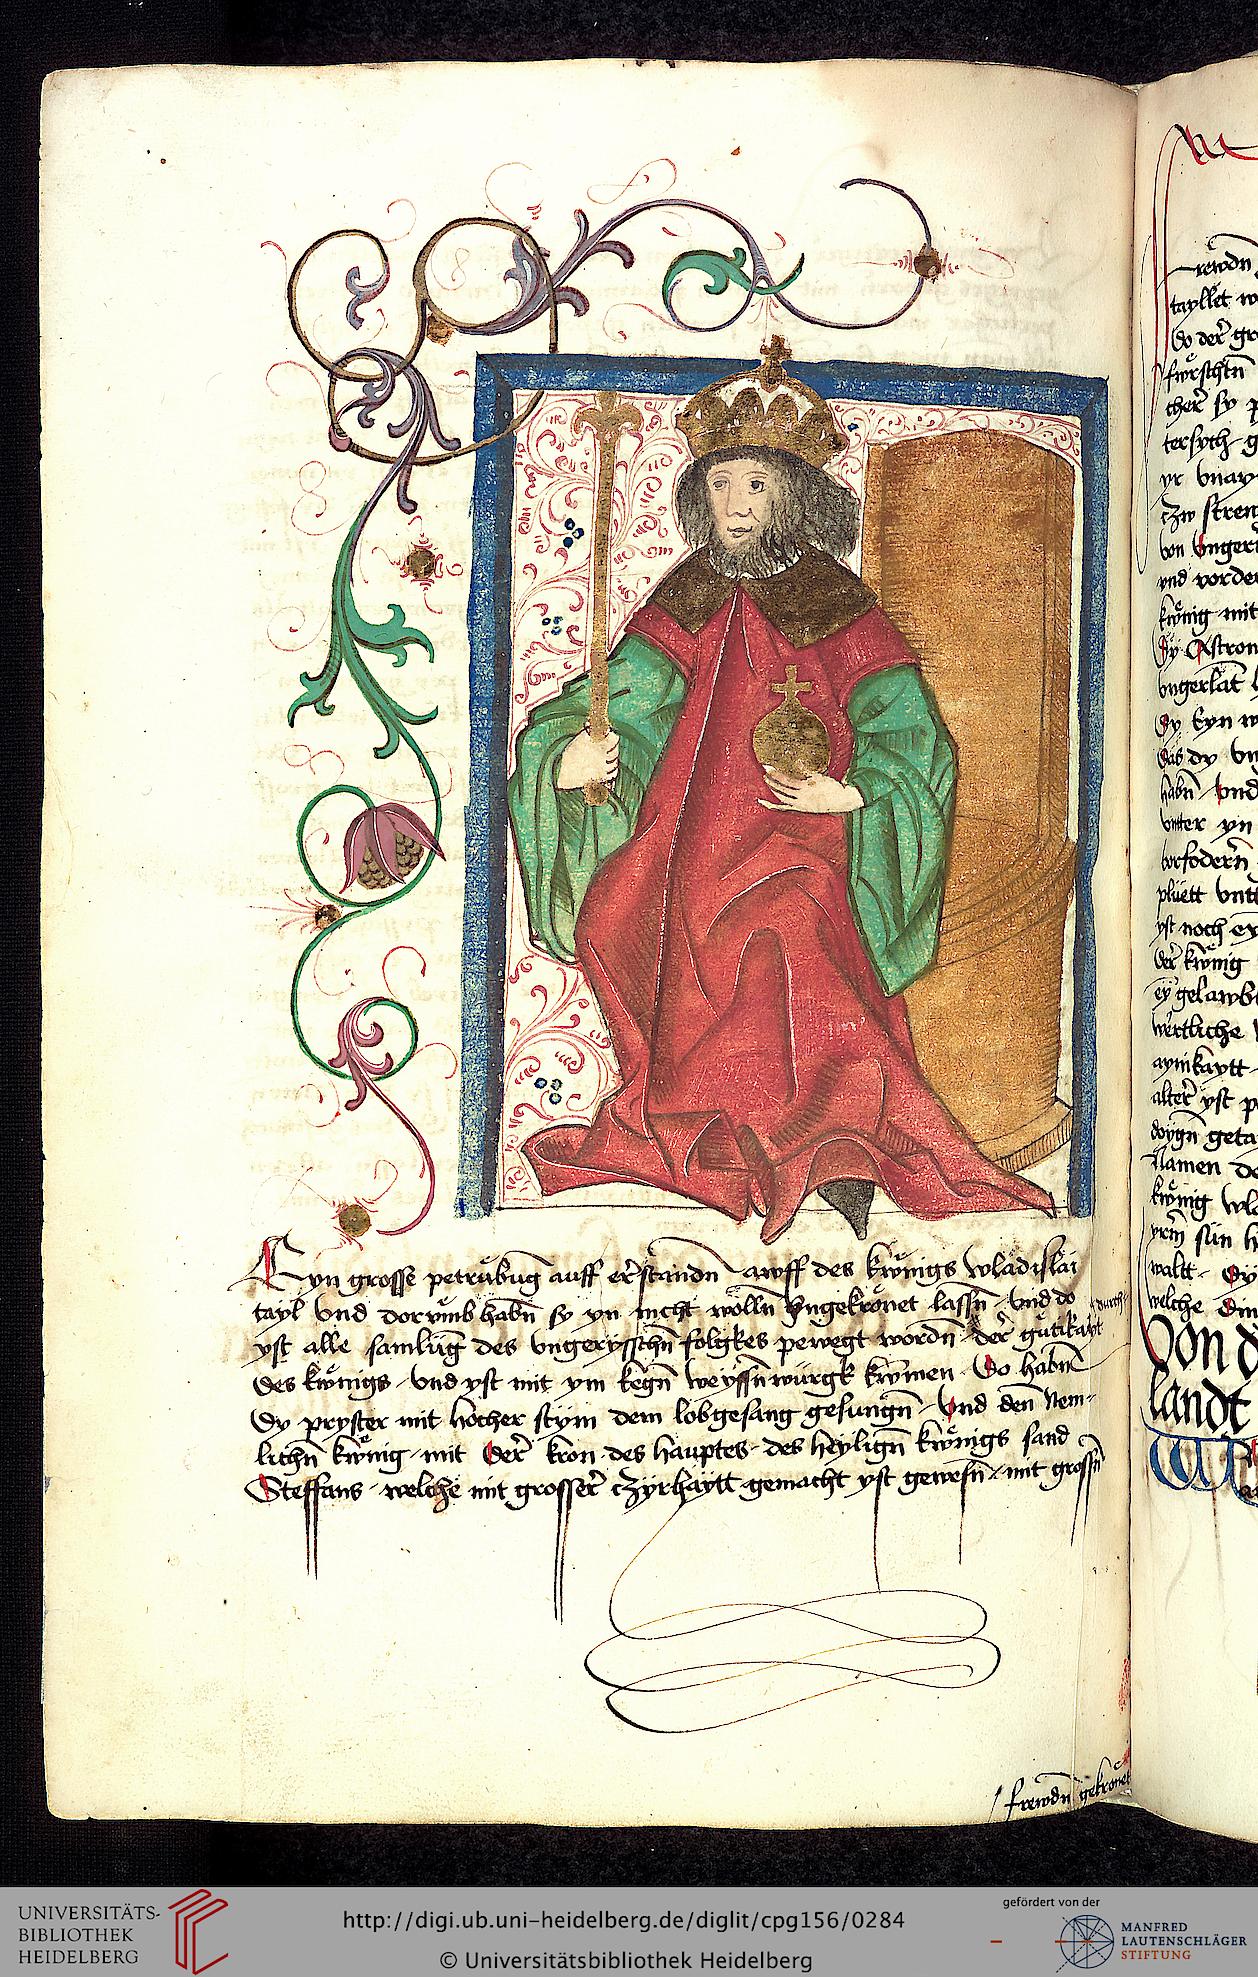 Eyn grosse petrubug̅ auff er̅standn̅ awff des kwnigs wladislai
tayl vnd dor vmb habn̅ sy yn nicht wolln̅ vngekrönet lassn̅ · vnd do
yst alle samlug̅ des vngeryschn̅ folgkes pewegt wordn̅ · durch der̅ gutikayt
des kwnigs · vnd yst mit ym kegn̅ weyssn̅würgk kwmen · Do habn̅
dy pryster mit hocher stym dem lobgesang gesungn̅ · vnd den nem-
lichn̅ kwnig · mit der̅ kron · des hauptes · des heylign̅ kwnigs sand
Steffans · welche mit grosser̅ czyrhaytt gemacht yst gewesn̅ · mit grossn̅
frewdn̅ gekrönet
frewdn̅
tayllet
do der̅
fwrschtn̅
cher̅ sy
yr vnay
czw
von vnger
vnd vorder
kwnig mit
dy Astron
vngerlat̅
dy Eyn
das dy
habn̅ · vnd
vnter yn
vorfodern̅
yst noch
der̅ kwnig
ey gelawb
wertliche
aynikaytt
alter̅ yst
Namen
kwnig wla
yrm̅ sün
waltt ·
welche
Von d
landt
UNIVERSITÄTS-
BIBLIOTHEK
HEIDELBERG
http://digi.ub.uni-heidelberg.de/diglit/cpg156/0284
© Universitätsbibliothek Heidelberg
gefördert von der
MANFRED
LAUTENSCHLÄGER
STIFTUNG